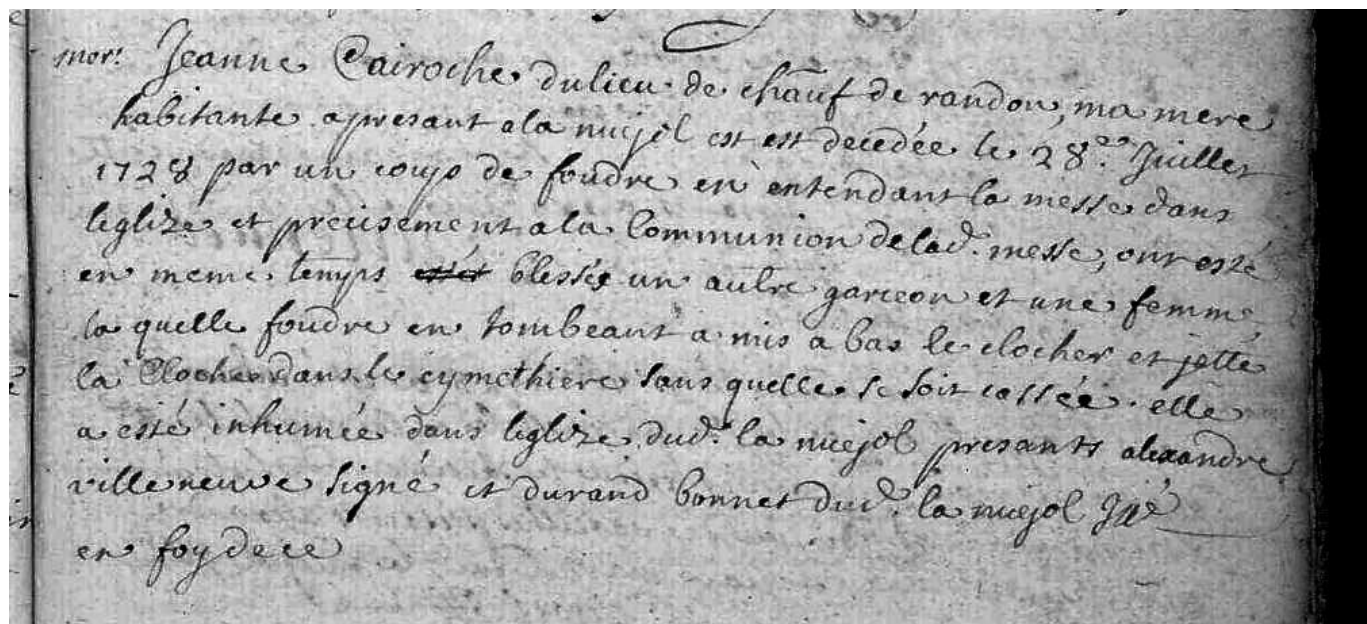 mort Jeanne Cairoche du lieu de chauf de randon, ma mere
habitante apresant a la nuejol est est decedée le 28e Juillet
1728 par un coup de foudre en entendant la messe dans
leglize et precisement a la Communion de lad. messe, ont esté
en meme temps blessée un autre garceon et une femme
la quelle foudre en tombeant a mis a bas le clocher et jetté
la Cloche dans le cymethiere sans quelle se soit cassée. elle
a esté inhumée dans leglize dud. la nuejol presants alexandre
villeneuve signé et durand bonnet dud. la nuejol
en foy de ce